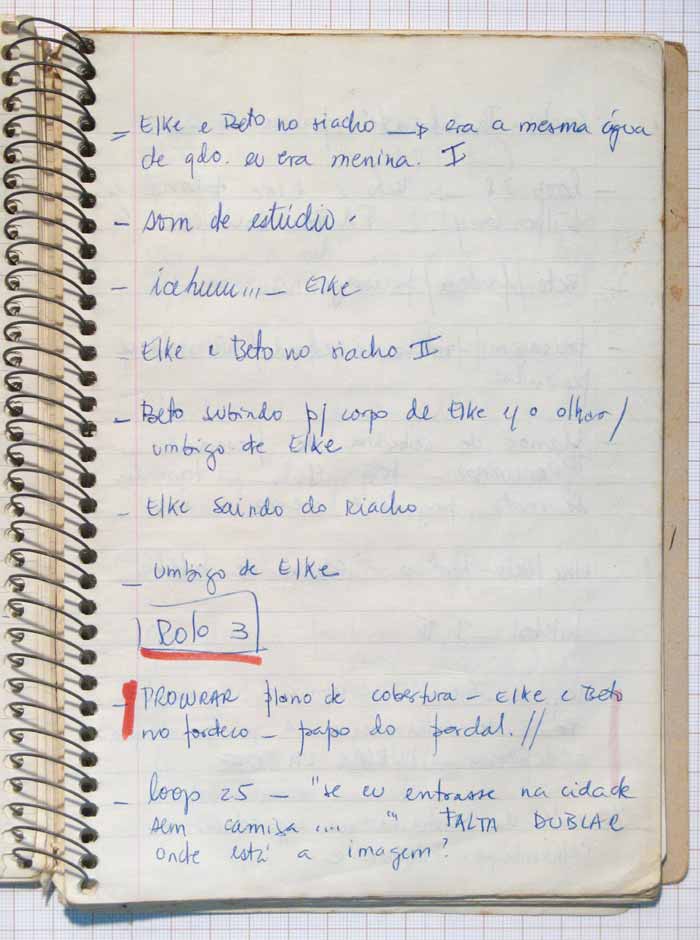 = Elke e Beto no riacho → era a mesma água
de qdo. eu era menina. I
- som de estúdio.
- iahuuu... - Elke
Elke e Beto no riacho II
- Beto subindo p/ corpo de Elke y o olhar/
umbigo de Elke
- Elke saindo do Riacho
- umbigo de Elke
Rolo 3
- PROCURAR plano de cobertura - Elke e Beto
no fordeco - papo do pardal. //
- loop 25 - "se eu entrasse na cidade
sem camisa .... " FALTA DUBLAR
onde está a imagem?